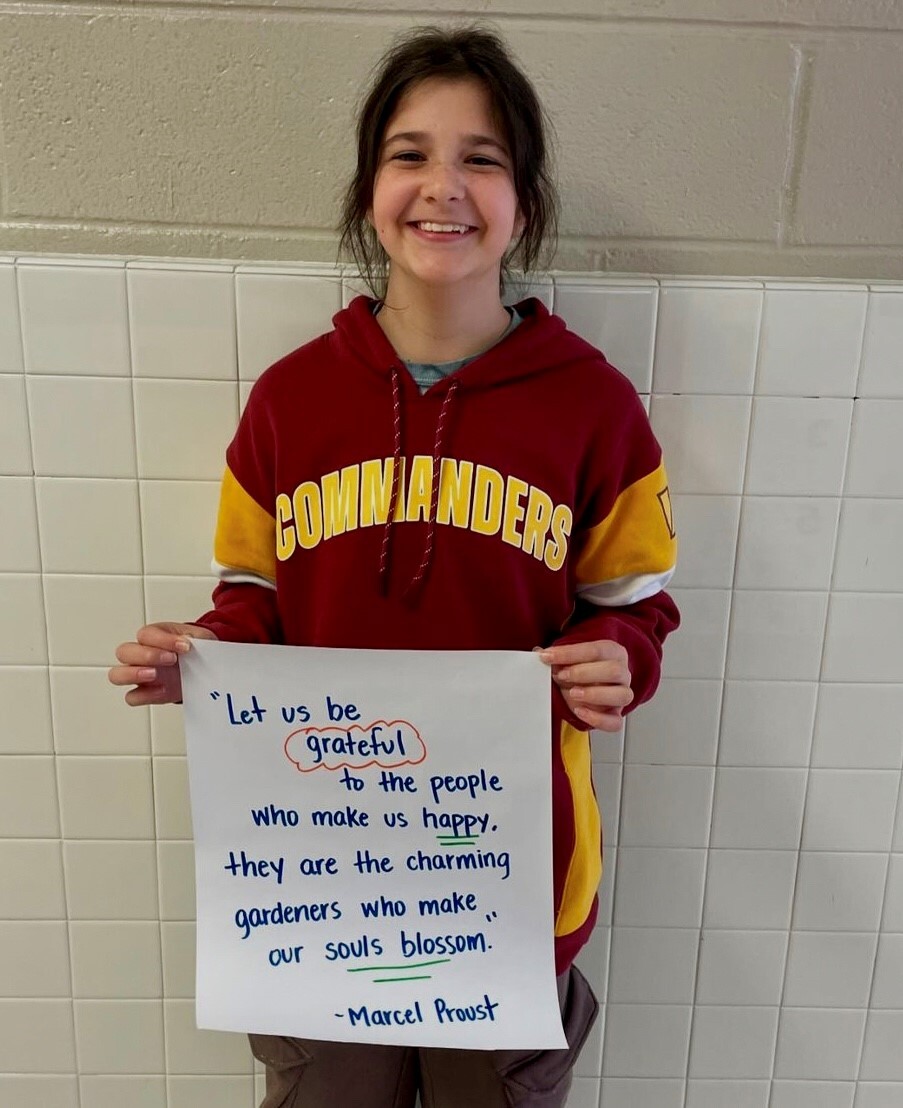 COMMANDERS
"Let us be
grateful
to the people
who make us happy.
they are the charming
gardeners who make
our souls blossom."
-Marcel Proust